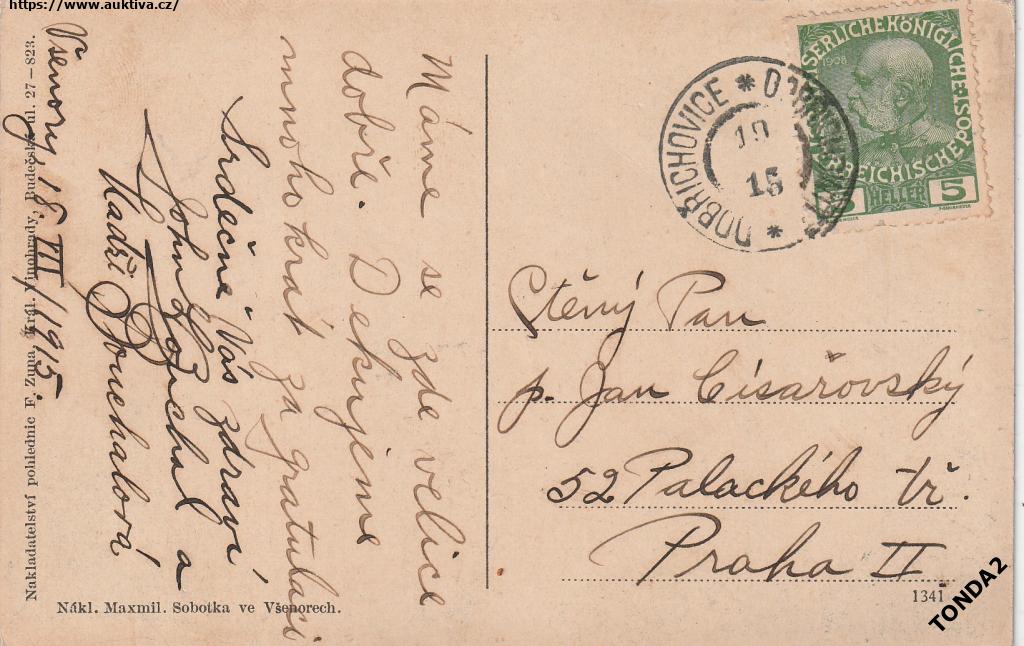 https://www.auktiva.cz/
Všenory, 18 VII/1915.
Máme se zde velice
dobře. Děkujeme
mnoho krát za gratulaci
Srdečně Vás zdraví
John Bouchal a
Bouchalová
Nakladatelství pohlednic F. Zuna, Král. Vinohrady, Budečská ul. 27—823.
Nákl. Maxmil. Sobotka ve Všenorech.
DOBŘICHOVICE *
15
1908
HELLER
5
Ctěný Pan
p. Jan Císařovský
52 Palackého tř.
Praha II
1341
TONDA2